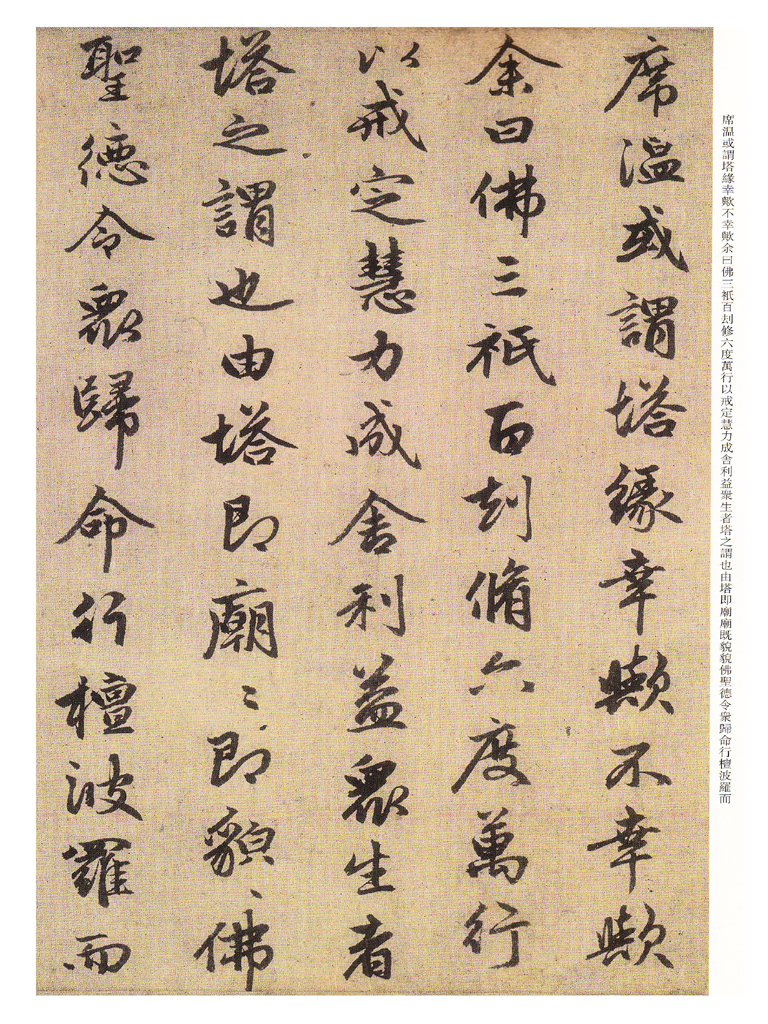 席溫或謂塔緣幸歟不幸歟
余曰佛三祇百刦脩六度萬行
以戒定慧力成舍利益衆生者
塔之謂也由塔即廟〻即貌〻佛
聖德令衆歸命行檀波羅而
席溫或謂塔緣幸歟不幸歟余曰佛三祇百刦修六度萬行以戒定慧力成舍利益衆生者塔之謂也由塔即廟廟既貌貌佛聖德令衆歸命行檀波羅而